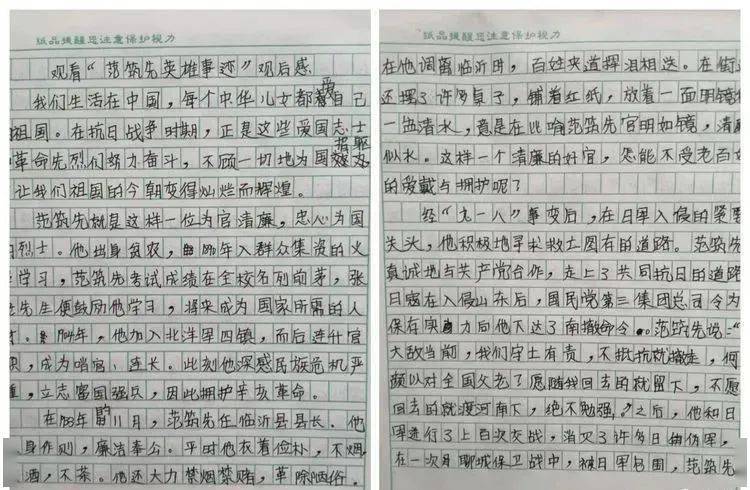 纸品提醒您注意保护视力
观看“范筑先英雄事迹”观后感
我们生活在中国，每个中华儿女都爱着自己
祖国。在抗日战争时期，正是这些爱国志士
革命先烈们努力奋斗，不顾一切地为国捐躯
让我们祖国的今朝变得灿烂而辉煌。
范筑先就是这样一位为官清廉，忠心为国
烈士。他出身贫农，年入群众集资的火
学习，范筑先考试成绩在全校名列前茅，张
先生便鼓励他学习，将来成为国家所需的人
1904年，他加入北洋军四镇，而后连升官
职，成为哨官、连长。此刻他深感民族危机严
重，立志富国强兵，因此拥护辛亥革命。
在年的11月，范筑先任临沂县县长。他
身作则，廉洁奉公。平时他衣着俭朴，不烟
酒，不茶。他还大力禁烟禁赌，革除陋俗。
纸品提醒您注意保护视力
在他调离临沂时，百姓夹道挥泪相送。在街道
还摆了许多桌子，铺着红纸，放着一面明镜
一盆清水，意是在比喻范筑先官明如镜，清廉
似水。这样一个清廉的好官，怎能不受老百姓
的爱戴与拥护呢？
经“九一八”事变后，在日军入侵的紧要
关头，他积极地寻求救亡图存的道路。范筑先
真诚地与共产党合作，走上了共同抗日的道路
日寇在入侵山东后，国民党第三集团总司令为
保存实力后他下达了南撤命令。范筑先说：“
大敌当前，我们守土有责，不抵抗就撤走，何
颜以对全国父老？愿随我回去的就留下，不愿
回去的就渡河南下，绝不勉强。”之后，他和日
军进行了上百次交战，消灭了许多日伪军，
在一次聊城保卫战中，被日军包围，范筑先